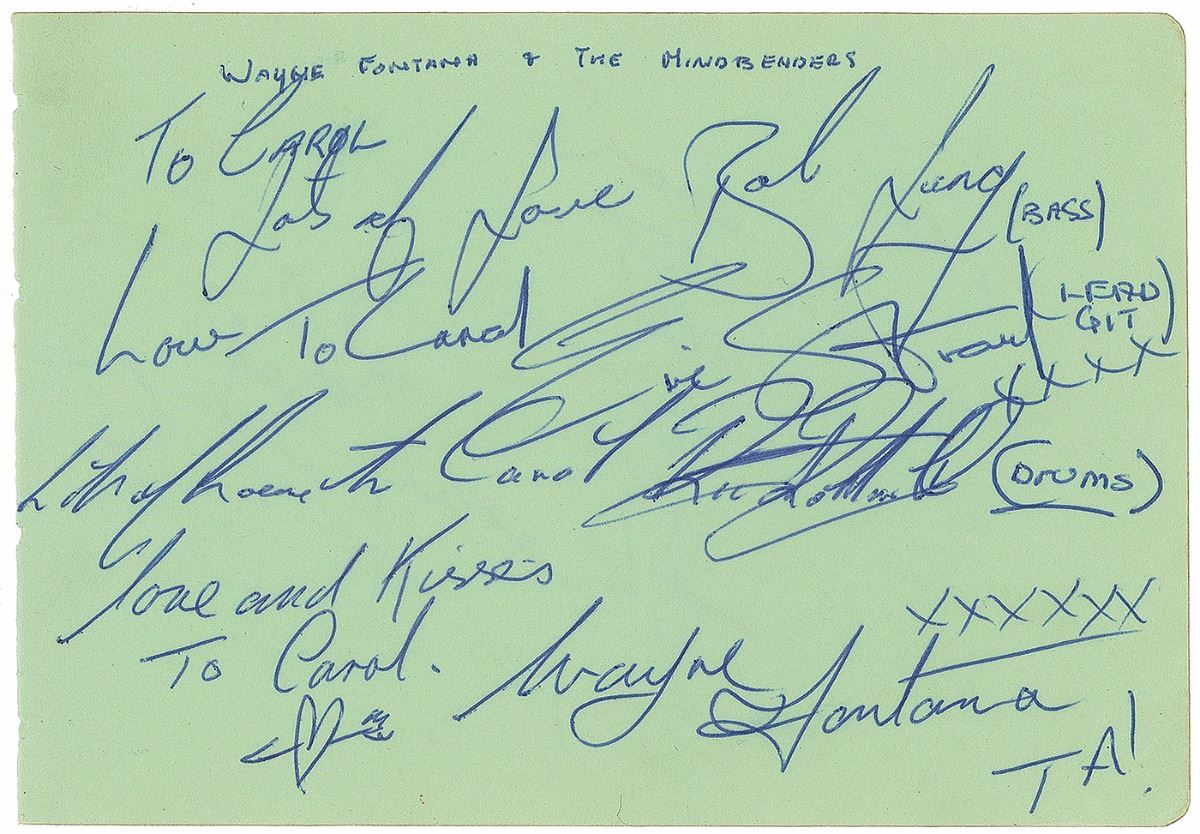 WAYNE FONTANA & THE MINDBENDERS
To CAROL
Lots of Love Bob Lang (BASS)
Love To Carol Eric Stewart (LEAD GIT
XXXX
Lots of Love to Carol Ric Rothwell (DRUMS)
love and Kisses XXXXXX
To Carol. Wayne Fontana
TA!